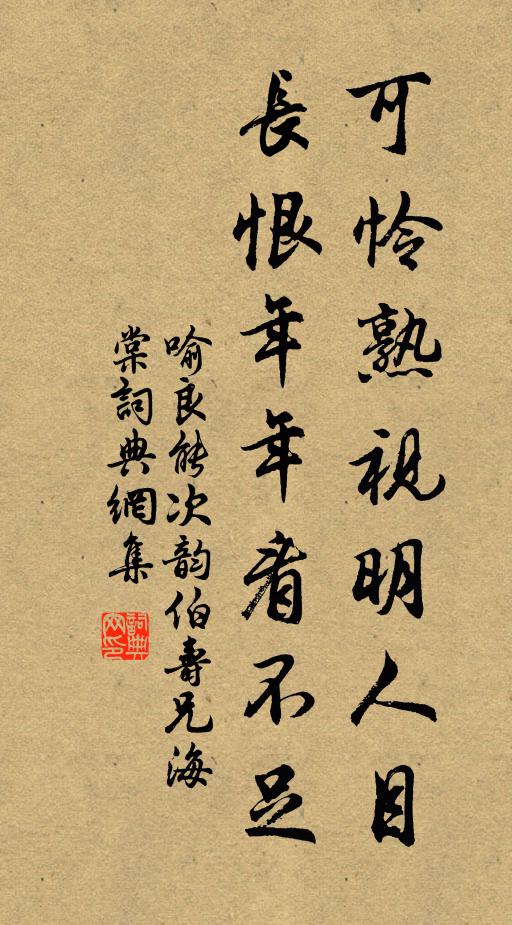 可怜熟視明人目
長恨年年看不足
喻良能次韵伯壽兄海
棠詞典網集
詞典
网印